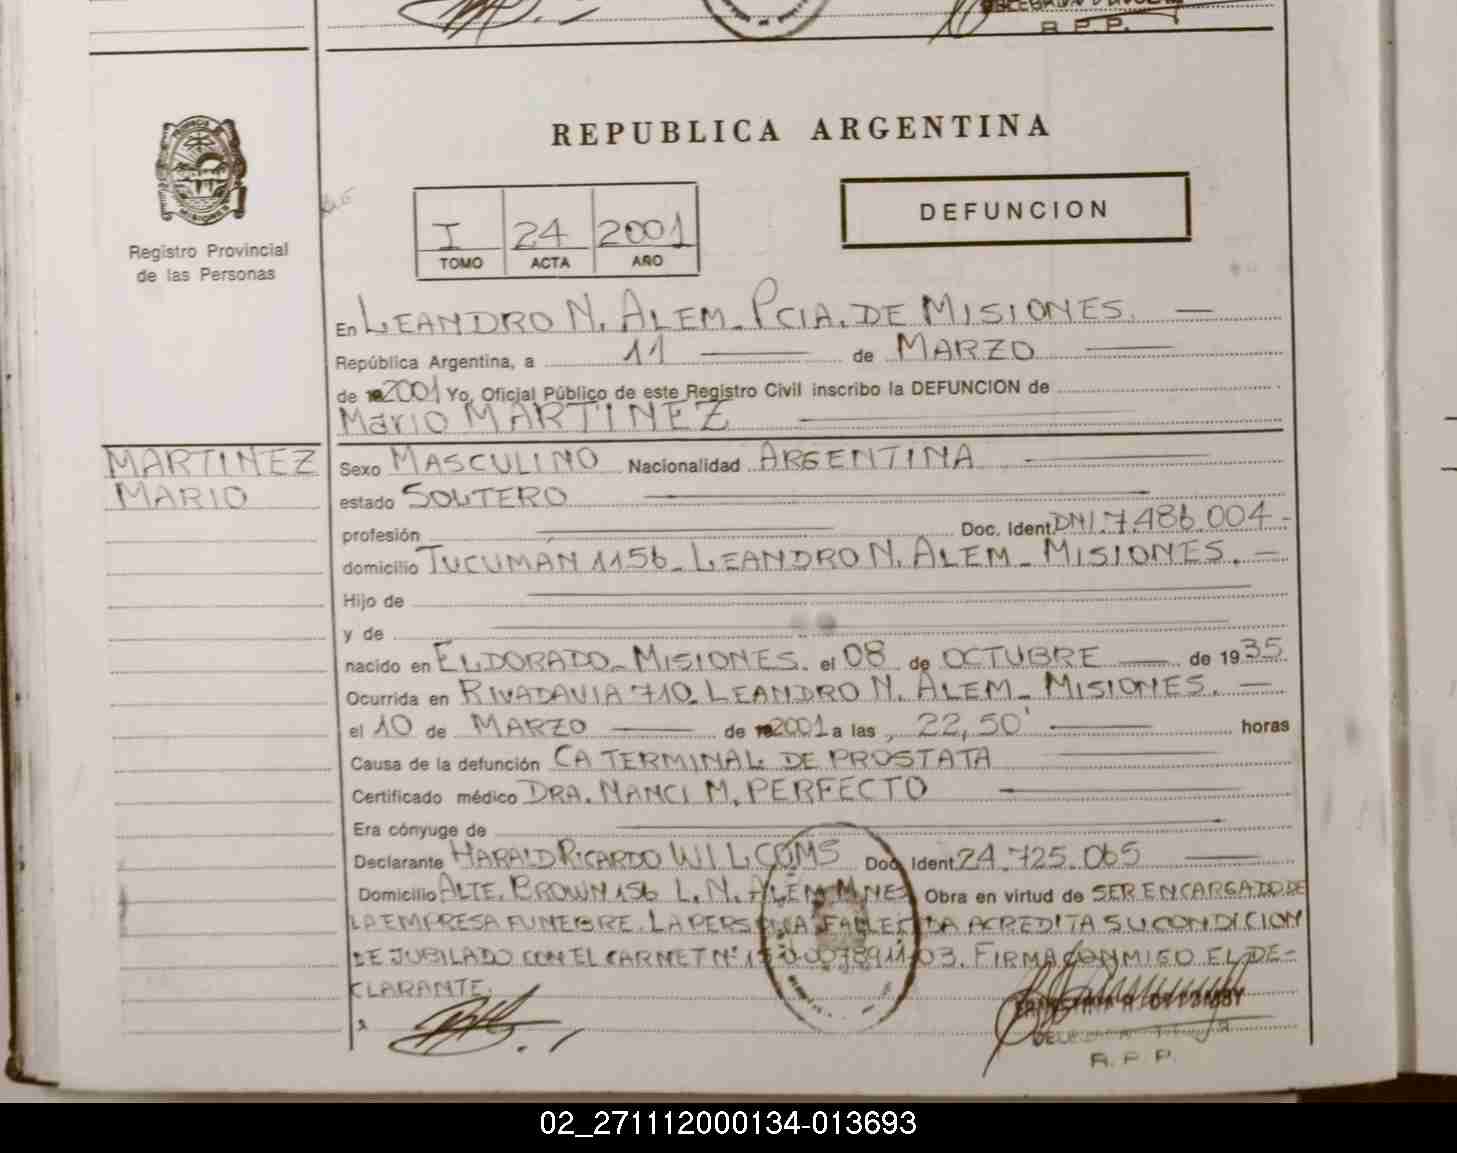 R.P.P.
REPUBLICA ARGENTINA
PROVINCIA
MISIONES
Registro Provincial
de las Personas
I 24 2001
TOMO ACTA AÑO
DEFUNCION
En LEANDRO N. ALEM - PCIA. DE MISIONES. —
República Argentina, a 11 — de MARZO —
de 2001 Yo, Oficial Público de este Registro Civil inscribo la DEFUNCION de
Mario MARTINEZ —
MARTINEZ
MARIO
Sexo MASCULINO Nacionalidad ARGENTINA —
estado SOLTERO —
profesión — Doc. Ident DNI. 7.486.004 -
domicilio TUCUMAN 1156 - LEANDRO N. ALEM - MISIONES. —
Hijo de —
y de —
nacido en ELDORADO - MISIONES. el 08 de OCTUBRE — de 1935
Ocurrida en RIVADAVIA 710. LEANDRO N. ALEM - MISIONES. —
el 10 de MARZO — de 2001 a las 22,50' — horas
Causa de la defunción CA TERMINAL DE PROSTATA —
Certificado médico DRA. NANCI M. PERFECTO —
Era cónyuge de —
Declarante HARALD RICARDO WILCOMS Doc. Ident 24.725.065 —
Domicilio ALTE. BROWN 156 L.N. ALEM MNES Obra en virtud de SER ENCARGADO DE
LA EMPRESA FUNEBRE. LA PERSONA FALLECIDA ACREDITA SU CONDICION
DE JUBILADO CON EL CARNET Nº 03. FIRMA CONMIGO EL DE-
CLARANTE.
R.P.P.
02_271112000134-013693